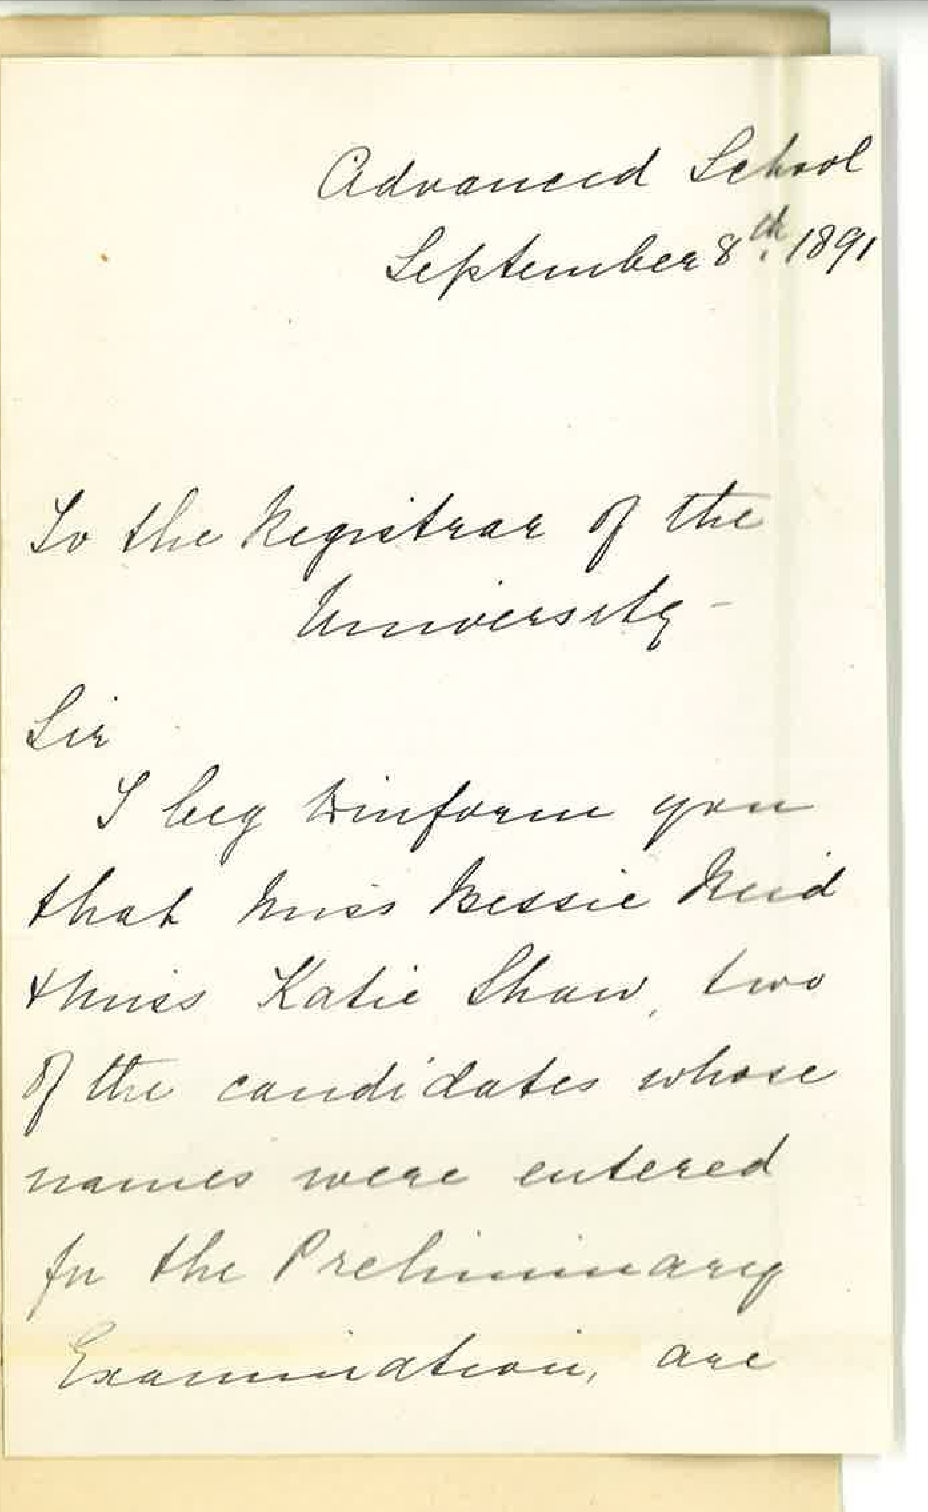 Advanced School
September 8th. 1891
To the Registrar of the
University -
Sir
I beg to inform you
that Miss Bessie Reid
& Miss Katie Shaw, two
of the candidates whose
names were entered
for the Preliminary
Examination, are